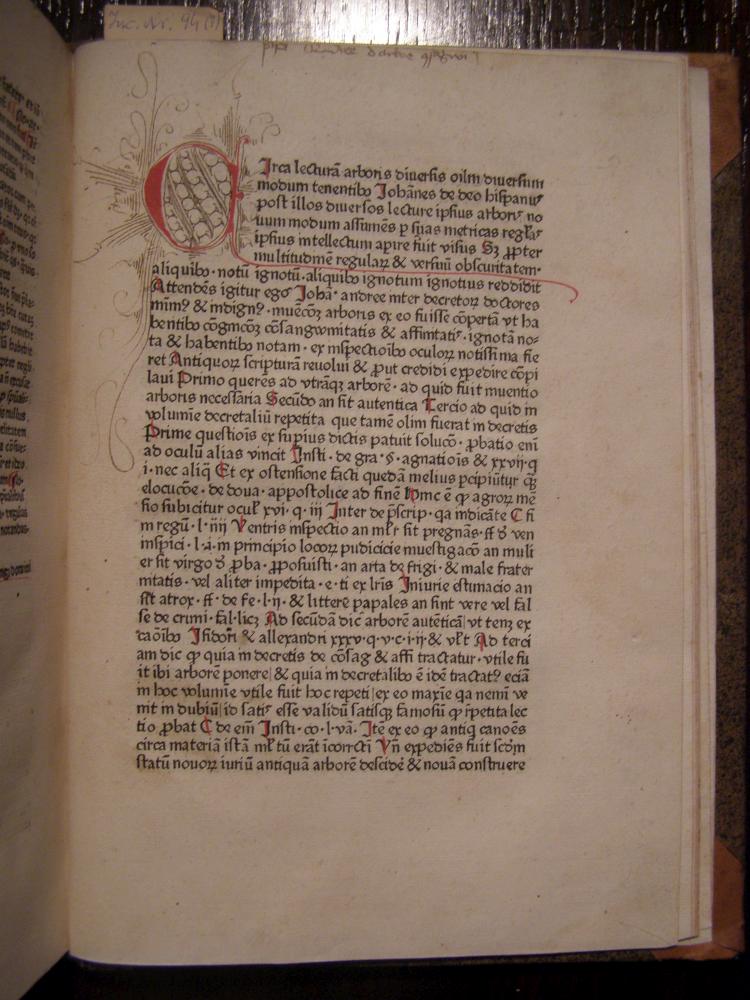 Inc. Nr. 94 (1)
CIrca lecturā arboris diuersis olim diuersum
modum tenentibꝰ Johānes de deo hispanꝰ
post illos diuersos lecture ipsius arborꝭ no
uum modum assumēs ꝑ suas metricas regl'as
ipsius intellectum apire fuit visus Sꝫ ꝓpter
multitudinē regularꝝ & versuū obscuritatem·
aliquibꝰ· notū ignotū· aliquibꝰ ignotum ignotius reddidit
Attendēs igitur ego Johā· andree inter decretorꝝ doctores
mimꝰ & indignꝰ· muēcōꝫ arboris ex eo fuisse cōpertā vt ha
bentibꝰ cōgnicōꝫ cōsangwinitatis & affinitatꝭ· ignotā no-
ta & habentibꝰ notam· ex inspectioībꝰ oculorꝝ notissima fie
ret Antiquorꝝ scripturā reuolui & ꝓut credidi expedire cōpi
laui Primo queres ad vtrāqꝫ arborē· ad quid fuit inuentio
arboris necessaria Secūdo an sit autentica Tercio ad quid in
volumīe decretaliū repetita que tamē olim fuerat in decretis
Prime questiōis ex supius dictis patuit solucō· ꝓbatio eni
ad oculū alias vincit Insti· de gra·§· agnatiōis & xxvij·q
i·nec aliq̄ Et ex ostensione facti quedā melius ꝑcipiūtur qꝫ
elocucōe· de doua· appostolice ad finē hinc ē ꝙ agrorꝝ me
sio subicitur ocul' xvi· q· iij Inter de p̄scrip· qa indicāte C fi
in regū·l·iiij Ventris inspectio an ml'r sit pregnās·ff d' ven
inspici·l·i·in principio locorꝝ pudicicie inuestigacō an muli
er sit virgo d' ꝓba· ꝓposuisti· an arta de frigi· & male frater
nitatis· vel aliter impedita· e· ti ex lr̄is Iniurie estimacio an
sit atrox· ff· de fe·l·ij· & littere papales an sint vere vel fal
se de crimi· fal·licꝫ Ad secūdā dic' arborē autēticā| vt tenꝫ ex
caōibꝰ Isidori & allexandri xxxv·q·v·c·i·ij & vl't Ad terci
am dic ꝙ quia in decretis de cōsag & affi tractatur· vtile fu
it ibi arborē ponere| & quia in decretalibꝰ ē idē tractatꝰ eciā
in hoc volumīe vtile fuit hoc repeti| ex eo maxīe qa nemī ve
nit in dubiū| id satꝭ esse validū satisqꝫ famosū ꝙ r̄petita lec
tio ꝓbat C de em̄ Insti· co·l·vā· Itē ex eo ꝙ antiq̄ canōes
circa materiā istā ml'tū erāt īcorr'cti Vn̄ expediēs fuit scd'm
statū nouorꝝ iuriū antiquā arborē descidē & nouā construere